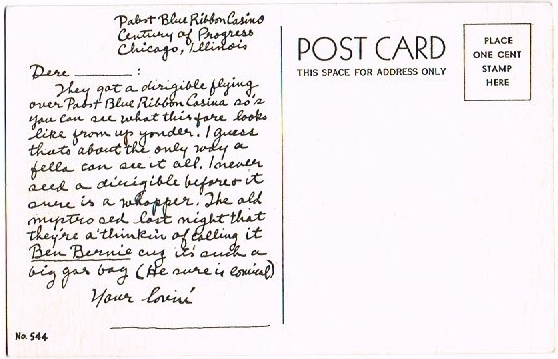 Pabst Blue Ribbon Casino
Century of Progress
Chicago, Illinois
Dere ________ :
They got a dirigible flying
over Pabst Blue Ribbon Casina so's
you can see what this fare looks
like from up yonder. I guess
thats about the only way a
fella can see it all. I never
seed a dirigible before & it
sure is a whopper. The old
mystro sed last night that
they're a'thinkin of calling it
Ben Bernie cuz it's such a
big gas bag (He sure is comical)
Your lovin'
No. 544
POST CARD
THIS SPACE FOR ADDRESS ONLY
PLACE
ONE CENT
STAMP
HERE